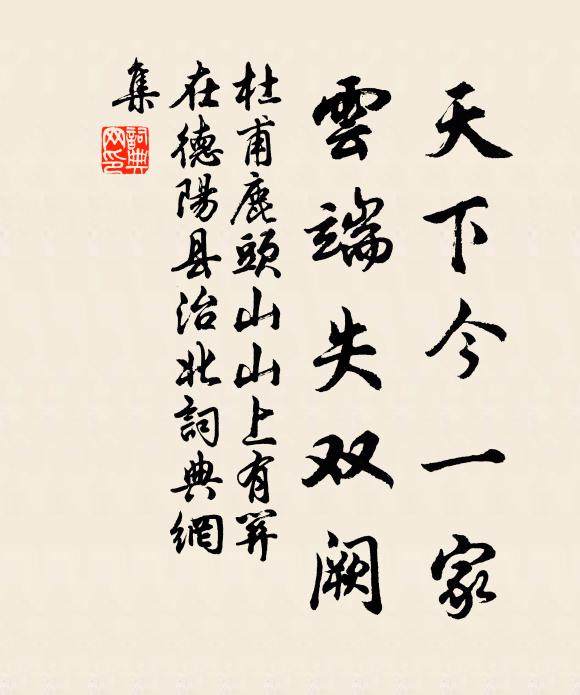 天下今一家
雲端失双阙
杜甫鹿頭山山上有關
在德陽县治北詞典網
集
詞典網印